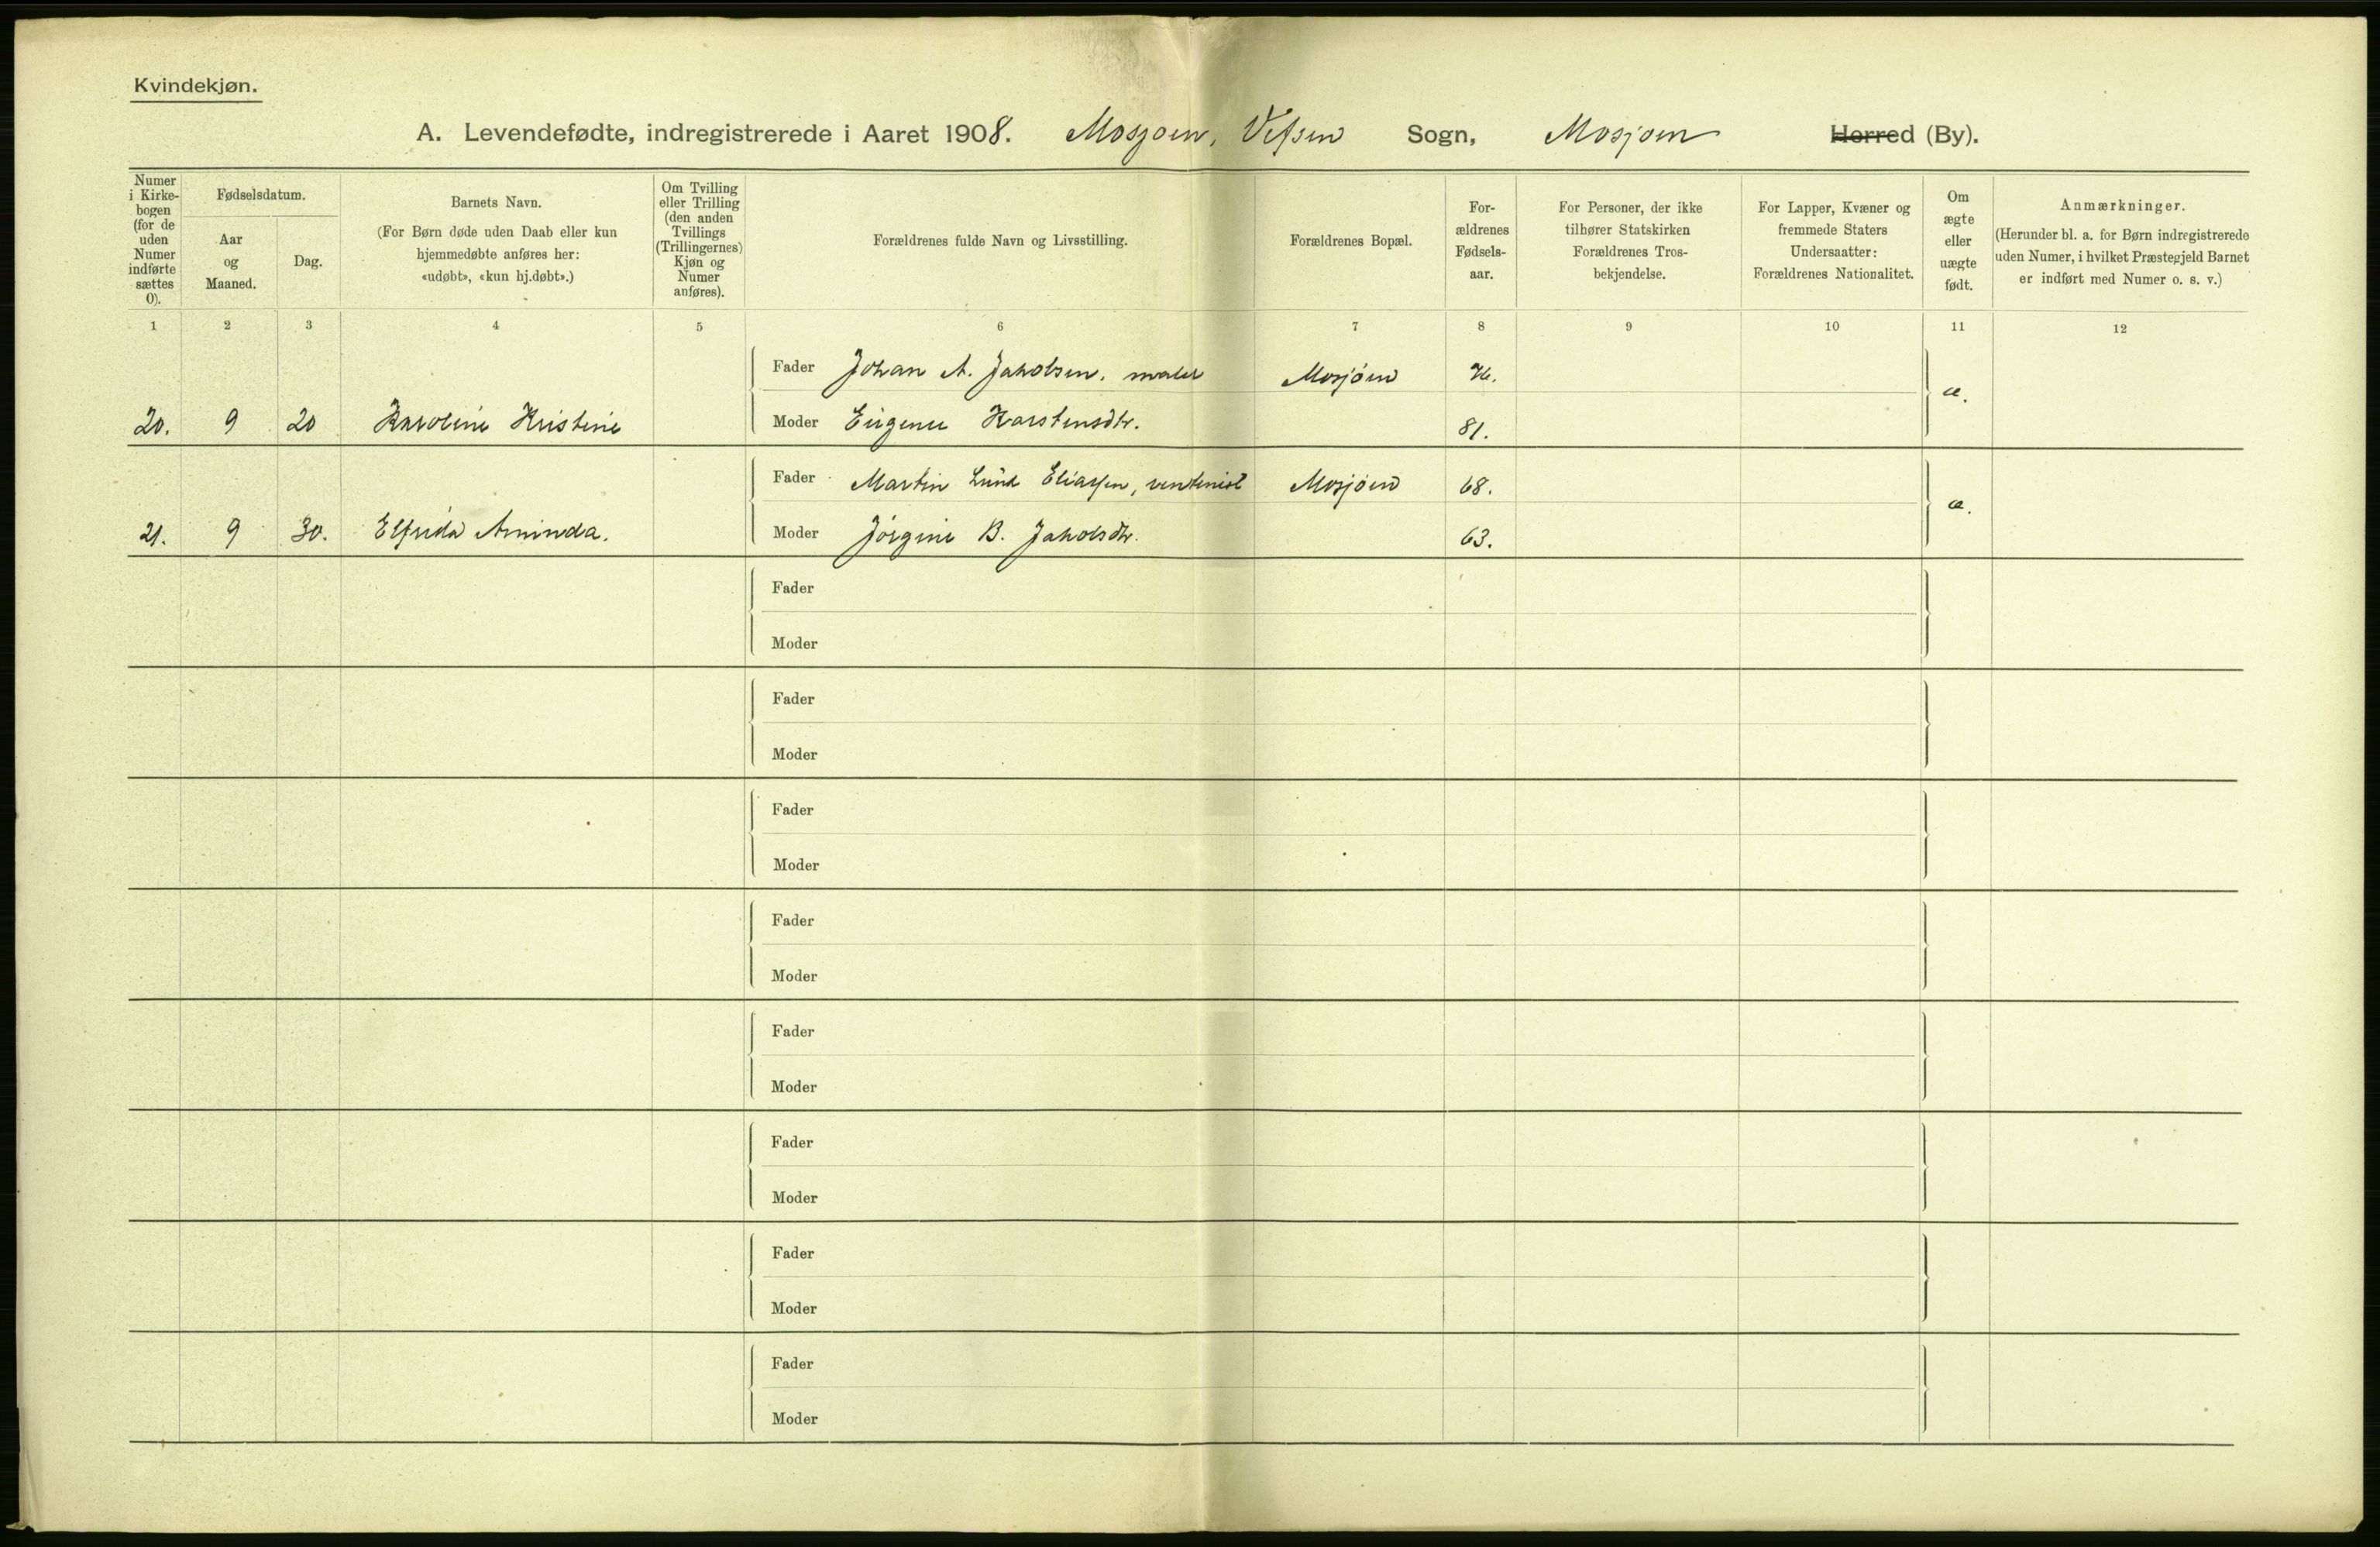 Kvindekjøn.
A. Levendefødte, indregistrerede i Aaret 1908. Mosjoen, Vefsen Sogn, Mosjoen Herred (By).
Numer i Kirke- bogen (for de uden Numer indførte sættes 0).
Fødselsdatum.
Aar og Maaned.
Dag.
Barnets Navn.
(For Børn døde uden Daab eller kun
hjemmedøbte anføres her:
«udøbt», «kun hj.døbt».)
Om Tvilling
eller Trilling
(den anden
Tvillings
(Trillingernes)
Kjøn og
Numer
anføres).
Forældrenes fulde Navn og Livsstilling.
Forældrenes Bopæl.
For-
ældrenes
Fødsels-
aar.
For Personer, der ikke
tilhører Statskirken
Forældrenes Tros-
bekjendelse.
For Lapper, Kvæner og
fremmede Staters
Undersaatter:
Forældrenes Nationalitet.
Om
ægte
eller
uægte
født.
Anmærkninger.
(Herunder bl. a. for Børn indregistrerede
uden Numer, i hvilket Præstegjeld Barnet
er indført med Numer o. s. v.)
1 2 3 4 5 6 7 8 9 10 11 12
Fader Johan A. Jakobsen, maler Mosjöen 76. æ.
20. 9 20 Karoline Kristine Moder Eugenie Karstensdtr. 81.
Fader Martin Lund Eliassen, Mosjöen 68. æ.
21. 9 30. Elfrida Aminda. Moder Jörgine B. Jakobsdtr. 63.
Fader
Moder
Fader
Moder
Fader
Moder
Fader
Moder
Fader
Moder
Fader
Moder
Fader
Moder
Fader
Moder